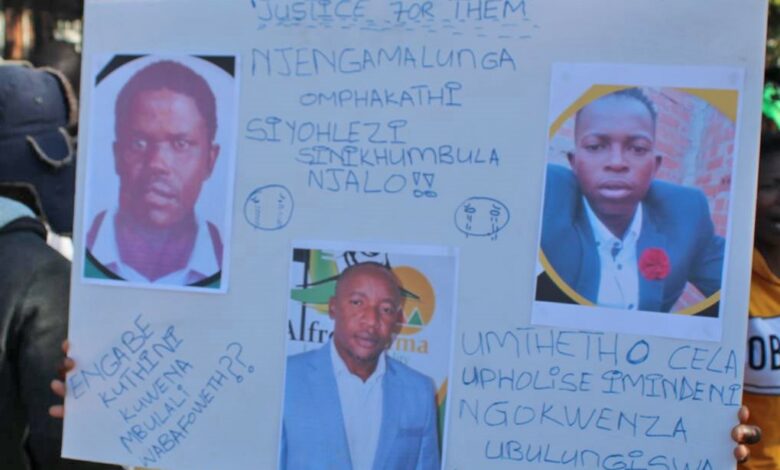 'JUSTICE FOR THEM
NJENGAMALUNGA
OMPHAKATHI
SIYOHLEZI
SINIKHUMBULA
NJALO!!
ENGABE
KUTHINI
KUWENA
MBULALI
WABAFOWETH??
Alfre
ma
UMTHETHO CELA
UPHOLISE IMINDENI
NGOKWENZA
UBULUNGISWA
OB